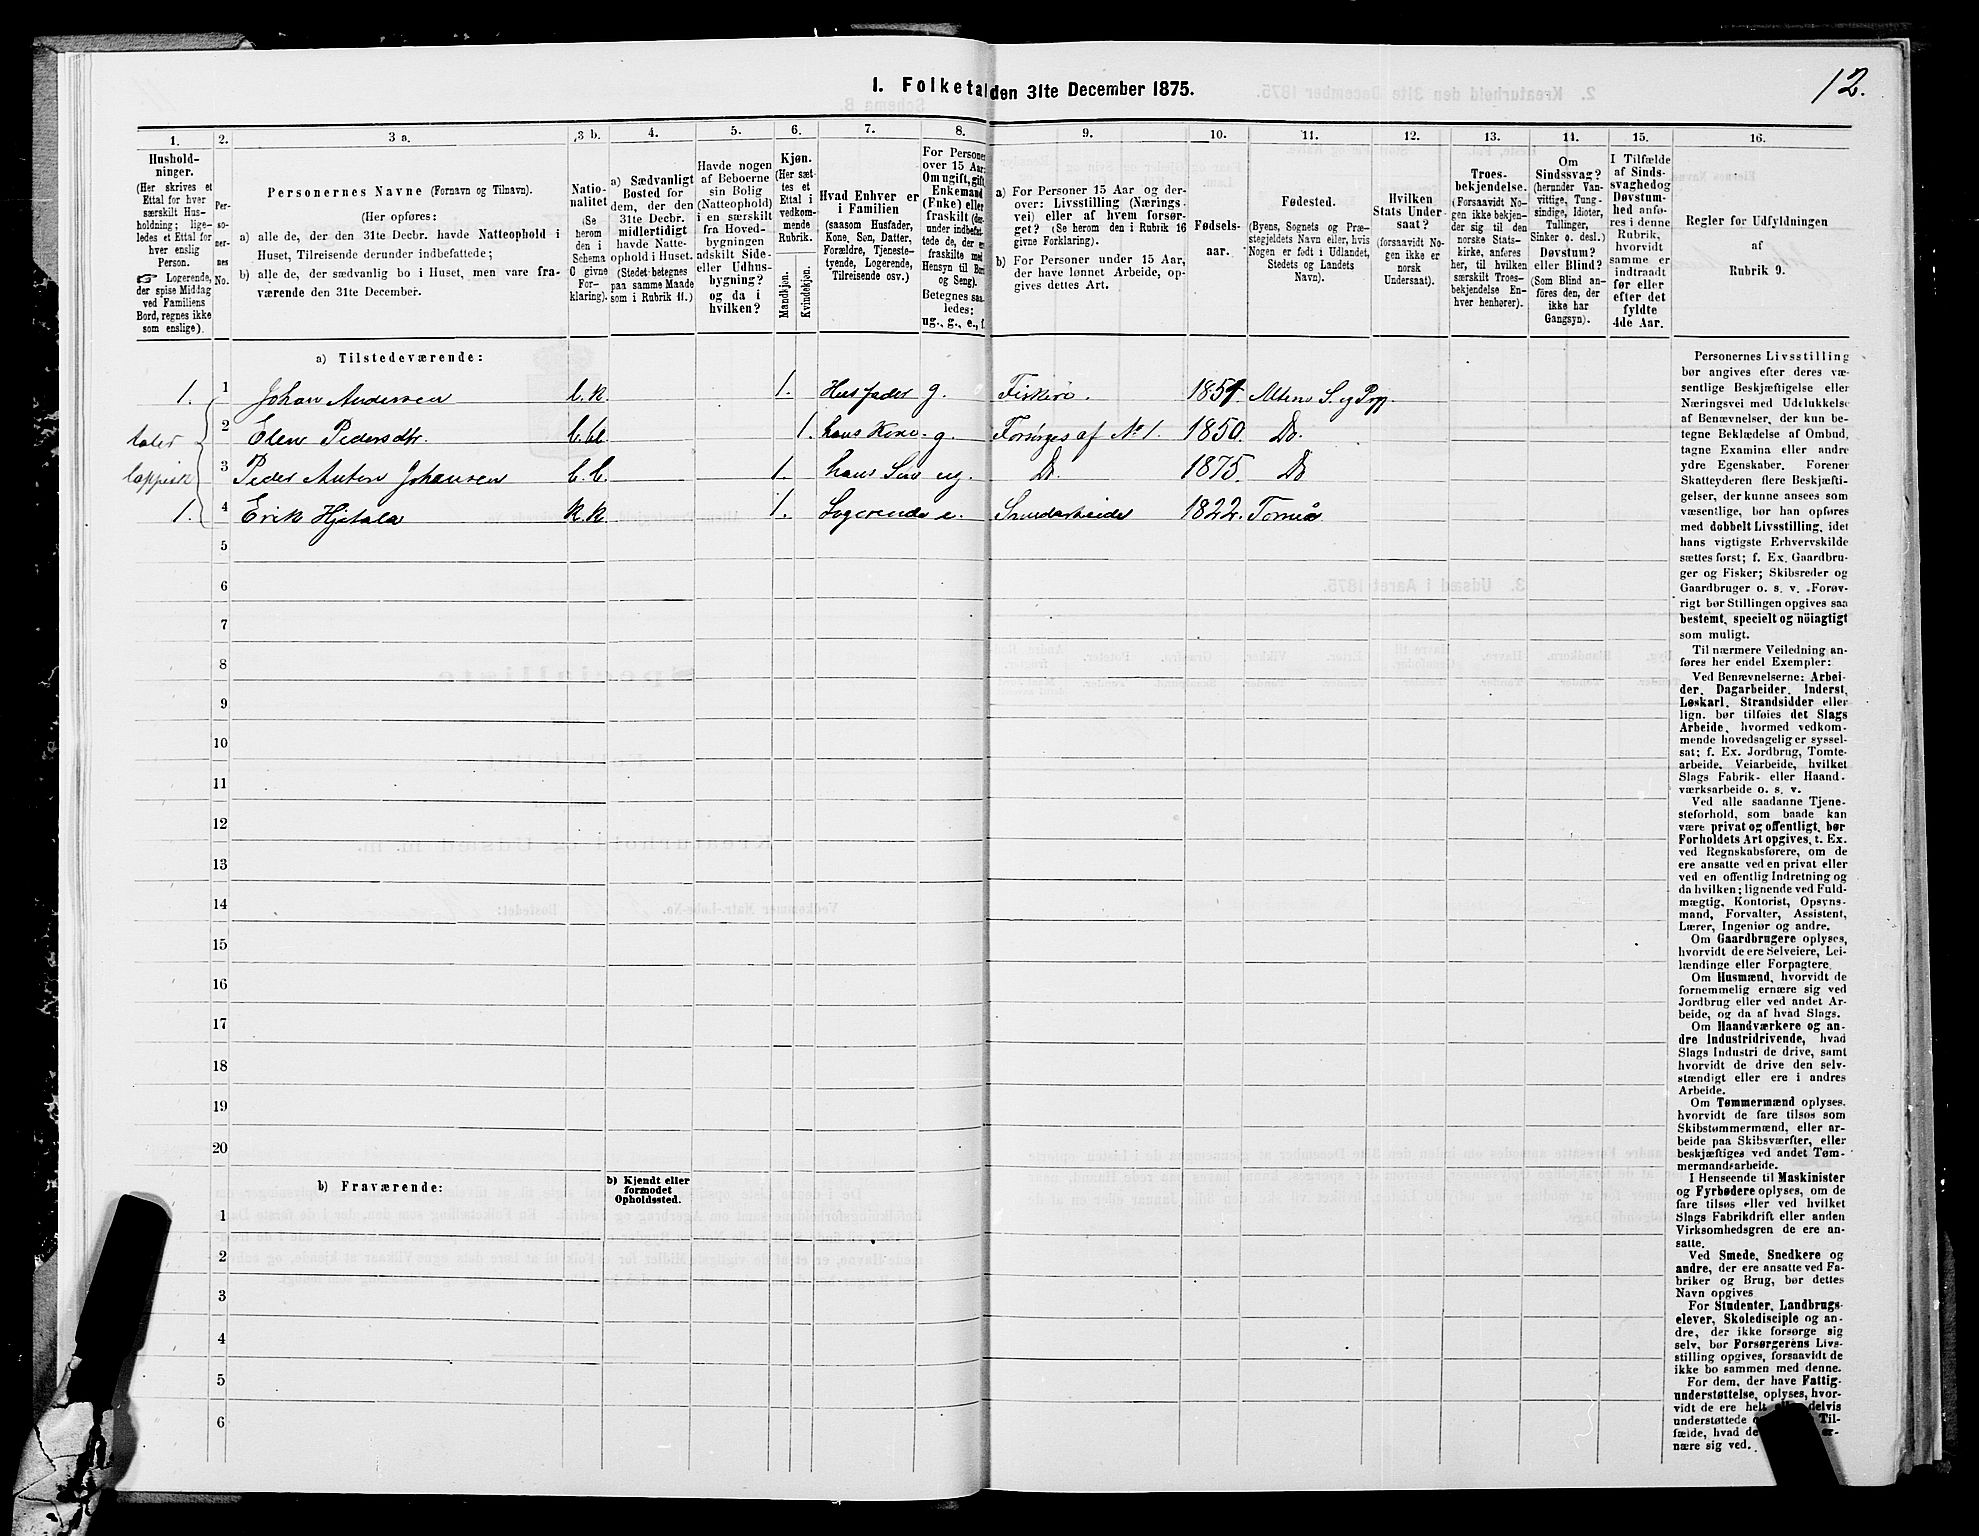 12.
1. Folketal den 31te December 1875.
1. 2. 3 a. 3 b. 4. 5. 6. 7. 8. 9. 10. 11. 12. 13. 14. 15. 16.
Hushold-
ninger.
(Her skrives et
Ettal for hver
særskilt Hus-
holdning; lige-
ledes et Ettal for
hver enslig
Person.
☞ Logerende,
der spise Middag
ved Familiens
Bord, regnes ikke
som enslige).
Per-
so-
ner-
nes
No.
Personernes Navne (Fornavn og Tilnavn).
(Her opføres:
a) alle de, der den 31te Decbr. havde Natteophold i
Huset, Tilreisende derunder indbefattede;
b) alle de, der sædvanlig bo i Huset, men vare fra-
værende den 31te December.
Natio-
nalitet
(Se
herom
den i
Schema
C givne
For-
klaring).
a) Sædvanligt
Bosted for
dem, der den
31te Decbr.
midlertidigt
havde Natte-
ophold i Huset.
(Stedet betegnes
paa samme Maade
som i Rubrik 11.)
Havde nogen
af Beboerne
sin Bolig
(Natteophold)
i en særskilt
fra Hoved-
bygningen
adskilt Side-
eller Udhus-
bygning?
og da i
hvilken?
Kjøn.
(Her sæt-
tes et
Ettal i
vedkom-
mende
Rubrik.
Mandkjøn.
Kvindekjøn.
Hvad Enhver er
i Familien
(saasom Husfader,
Kone, Søn, Datter,
Forældre, Tjeneste-
tyende, Logerende,
Tilreisende osv.)
For Personer
over 15 Aar:
Om ugift, gift,
Enkemand
(Enke) eller
fraskilt
Betegnes saa-
ledes:
ug., g., e., f.
a) For Personer 15 Aar og der-
over: Livsstilling (Nærings-
vei) eller af hvem forsør-
get? (Se herom den i Rubrik 16
givne Forklaring).
b) For Personer under 15 Aar,
der have lønnet Arbeide, op-
gives dettes Art.
Fødsels-
aar.
Fødested.
(Byens, Sognets og Præ-
stegjeldets Navn eller, hvis
Nogen er født i Udlandet,
Stedets og Landets
Navn).
Hvilken
Stats Under-
saat?
(forsaavidt No-
gen ikke er
norsk
Undersaat).
Troes-
bekjendelse.
(Forsaavidt No-
gen ikke bekjen-
der sig til den
norske Stats-
kirke, anføres
her, til hvilken
særskilt Troes-
bekjendelse En-
hver henhører).
Om
Sindssvag?
(herunder Van-
vittige, Tung-
sindige, Idioter,
Tullinger,
Sinker o. desl.)
Døvstum?
eller Blind?
(Som Blind an-
føres den, der
ikke har
Gangsyn).
I Tilfælde
af Sinds-
svaghed og
Døvstum-
hed anfø-
res i denne
Rubrik,
hvorvidt
samme er
indtraadt
før eller
efter det
fyldte
4de Aar.
Regler for Udfyldningen
af
Rubrik 9.
a) Tilstedeværende:
1. 1 Johan Andersen b. k. 1. Husfader g. Fisker. Alten S. og Pgj.
taler 2 Elen Pedersdtr. 1. hans Kone g. Forsørges af No 1. 1850. Do.
lappisk 3 Peder Anton Johansen b. b. 1. hans Søn ug. Do. 1875. Do
1. 4 Erik Hjetala k. k. 1. Logerende e. 1822. Torneå
5
6
7
8
9
10
11
12
13
14
15
16
17
18
19
20
b) Fraværende:
b) Kjendt eller
formodet
Opholdssted.
1
2
3
4
5
6
Personernes Livsstilling
bør angives efter deres væ-
sentlige Beskjæftigelse eller
Næringsvei med Udelukkelse
af Benævnelser, der kun be-
tegne Beklædelse af Ombud,
tagne Examina eller andre
ydre Egenskaber. Forener
Skatteyderen flere Beskjæfti-
gelser, der kunne ansees som
væsentlige, bør han opføres
med dobbelt Livsstilling, idet
hans vigtigste Erhvervskilde
sættes først; f. Ex. Gaardbru-
ger og Fisker; Skibsreder og
Gaardbruger o. s. v. Forøv-
rigt bør Stillingen opgives saa
bestemt, specielt og nöiagtigt
som muligt.
Til nærmere Veiledning an-
føres her endel Exempler:
Ved Benævnelserne: Arbei-
der, Dagarbeider, Inderst,
Løskarl, Strandsidder eller
lign. bør tilføies det Slags
Arbeide, hvormed vedkom-
mende hovedsagelig er syssel-
sat; f. Ex. Jordbrug, Tomte-
arbeide, Veiarbeide, hvilket
Slags Fabrik- eller Haand-
værksarbeide o. s. v.
Ved alle saadanne Tjene-
steforhold, som baade kan
være privat og offentligt, bør
Forholdets Art opgives, t. Ex.
ved Regnskabsførere, om de
ere ansatte ved en privat eller
ved en offentlig Indretning og
da hvilken; lignende ved Fuld-
mægtig, Kontorist, Opsyns-
mand, Forvalter, Assistent,
Lærer, Ingeniør og andre.
Om Gaardbrugere oplyses,
hvorvidt de ere Selveiere, Lei-
lændinge eller Forpagtere.
Om Husmænd, hvorvidt de
fornemmelig ernære sig ved
Jordbrug eller ved andet Ar-
beide, og da af hvad Slags.
Om Haandværkere og an-
dre Industridrivende, hvad
Slags Industri de drive, samt
hvorvidt de drive den selv-
stændigt eller ere i andres
Arbeide.
Om Tømmermænd oplyses,
hvorvidt de fare tilsøs som
Skibstømmermænd, eller ar-
beide paa Skibsværfter, eller
beskjæftiges ved andet Tøm-
mermandsarbeide.
I Henseende til Maskinister
og Fyrbødere oplyses, om de
fare tilsøs eller ved hvilket
Slags Fabrikdrift eller anden
Virksomhedsgren de ere an-
satte.
Ved Smede, Snedkere og
andre, der ere ansatte ved Fa-
briker og Brug, bør dettes
Navn opgives
For Studenter, Landbrugs-
elever, Skoledisciple og an-
dre, der ikke forsørge sig
selv, bør Forsørgerens Livs-
stilling opgives, forsaavidt de
ikke bo sammen med denne.
For dem, der have Fattig-
understøttelse, oplyses, hvor-
vidt de ere helt eller delvis
understøttede Til-
fælde, hvad de er-
nære sig ved.